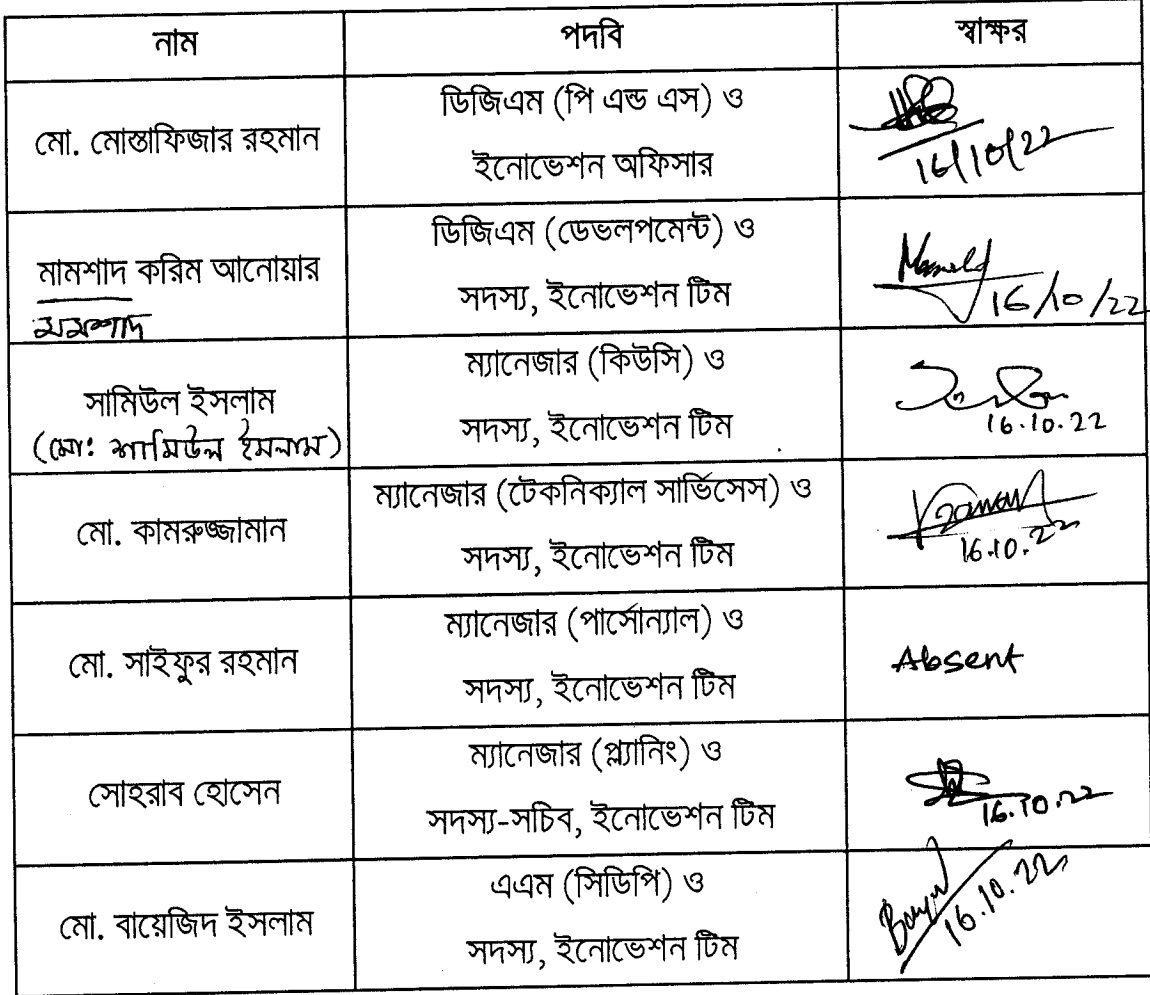 নাম পদবি স্বাক্ষর
মো. মোস্তাফিজার রহমান
ডিজিএম (পি এন্ড এস) ও
ইনোভেশন অফিসার
16/10/22
মামশাদ করিম আনোয়ার
মমশাদ
ডিজিএম (ডেভলপমেন্ট) ও
সদস্য, ইনোভেশন টিম
16/10/22
সামিউল ইসলাম
(মো: শামিউল ইসলাম)
ম্যানেজার (কিউসি) ও
সদস্য, ইনোভেশন টিম
16.10.22
মো. কামরুজ্জামান
ম্যানেজার (টেকনিক্যাল সার্ভিসেস) ও
সদস্য, ইনোভেশন টিম
16.10.22
মো. সাইফুর রহমান
ম্যানেজার (পার্সোন্যাল) ও
সদস্য, ইনোভেশন টিম
Absent
সোহরাব হোসেন
ম্যানেজার (প্ল্যানিং) ও
সদস্য-সচিব, ইনোভেশন টিম
16.10.22
মো. বায়েজিদ ইসলাম
এএম (সিডিপি) ও
সদস্য, ইনোভেশন টিম
16.10.22